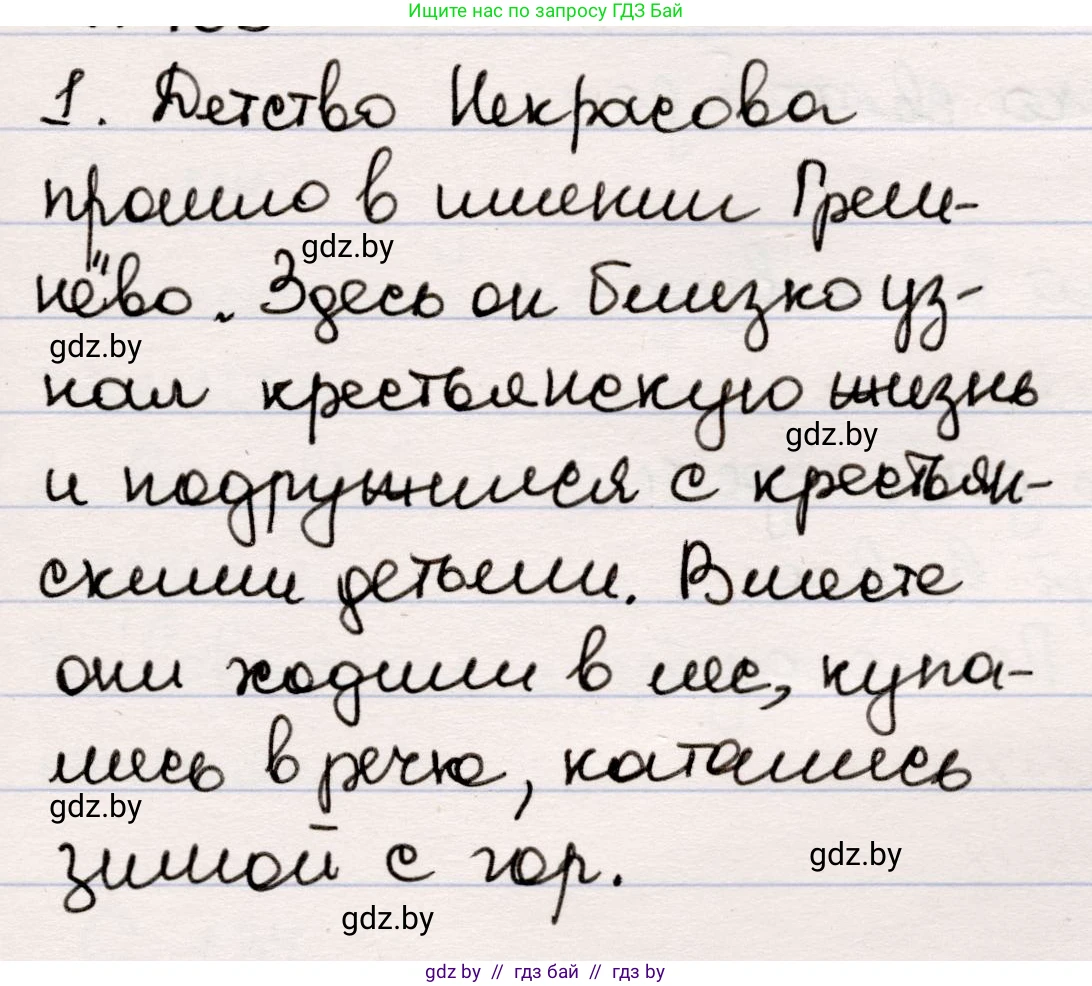 Ищите нас по запросу ГДЗ Бай
1. Детство Некрасова
прошло в имении Греш-
нёво. Здесь он близко уз-
gdz.by
gdz.by
нал крестьянскую жизнь
gdz.by
и подружился с крестьян-
скими детьми. Вместе
они ходили в лес, купа-
лись в речке, катались
gdz.by
зимой с гор.
gdz.by
gdz.by
gdz.by // гдз бай // гдз by